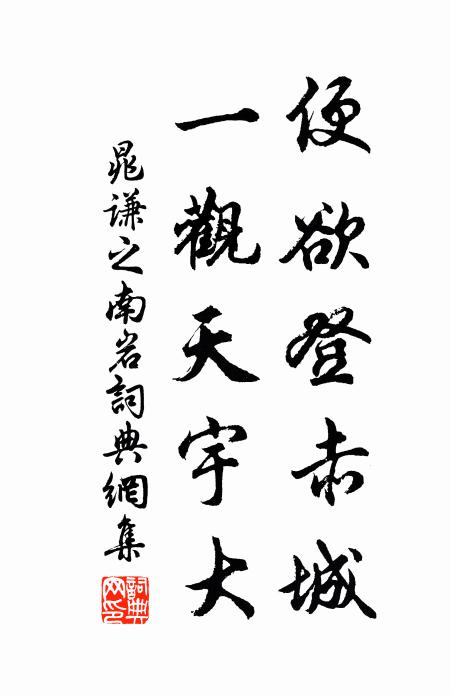 便欲登赤城
一觀天宇大
晁謙之南岩詞典網集
詞典網印